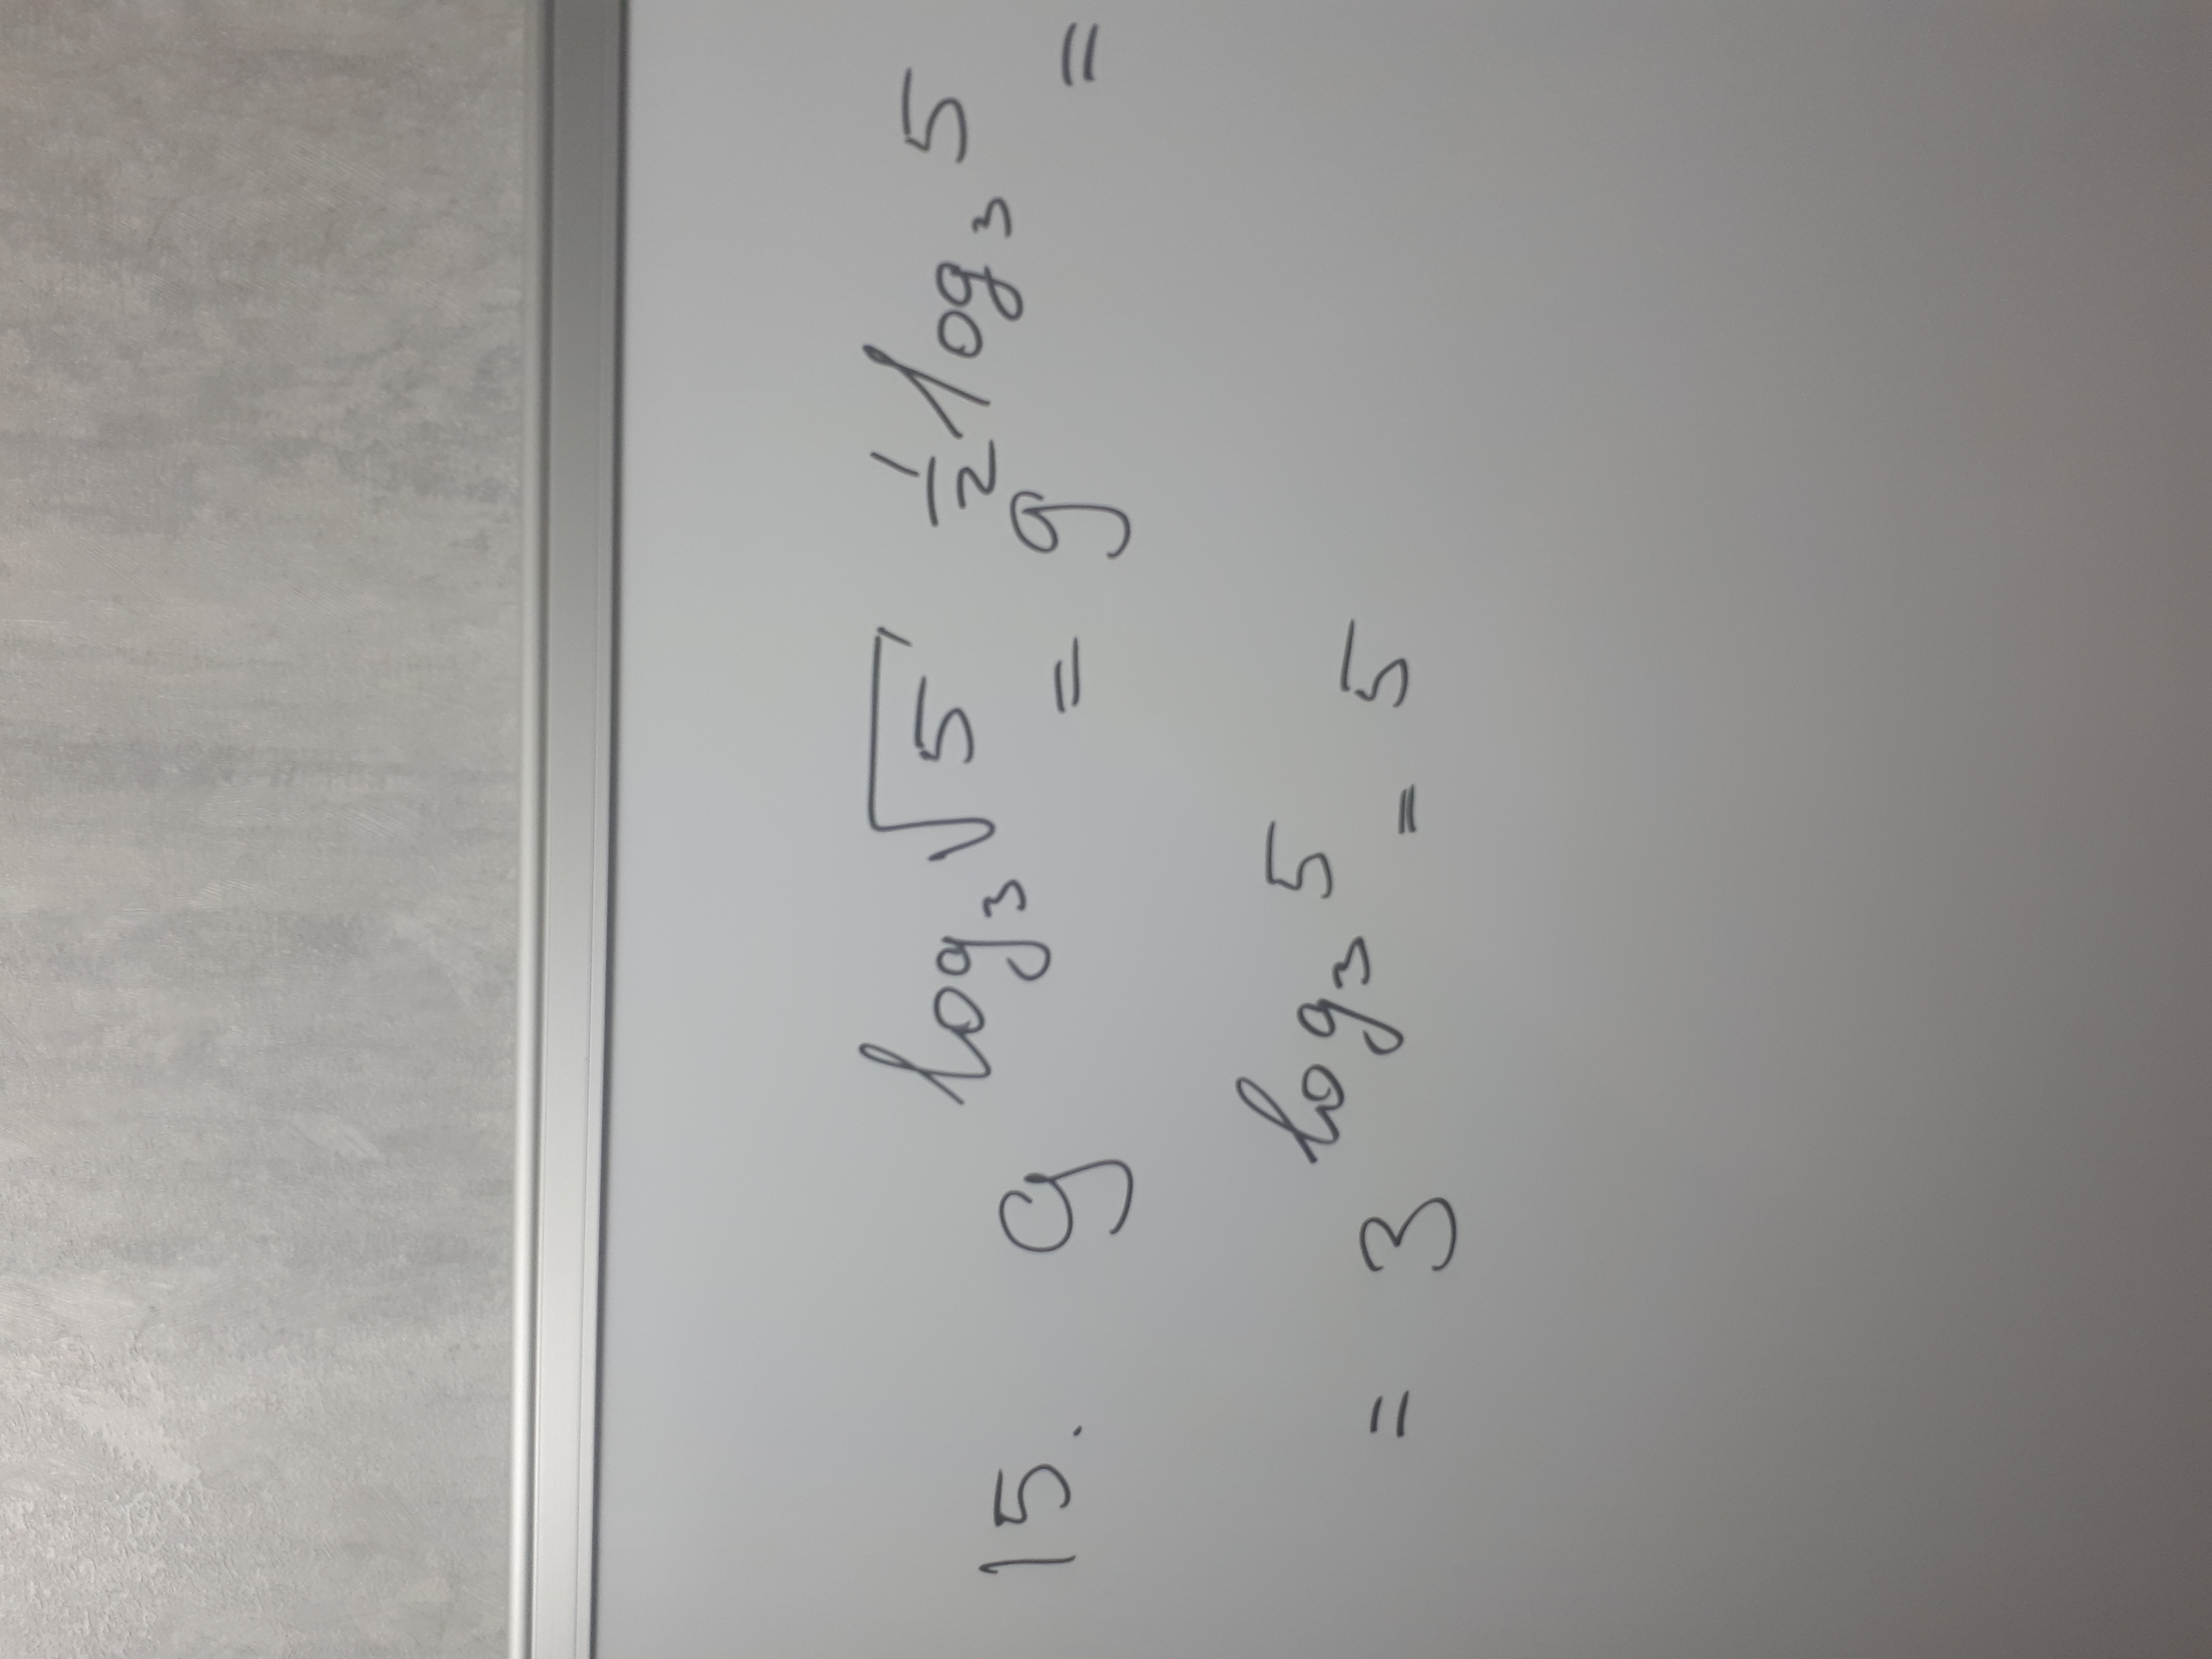 15. 9^{log_3 √5} = 9^{½ log_3 5} =
= 3^{log_3 5} = 5